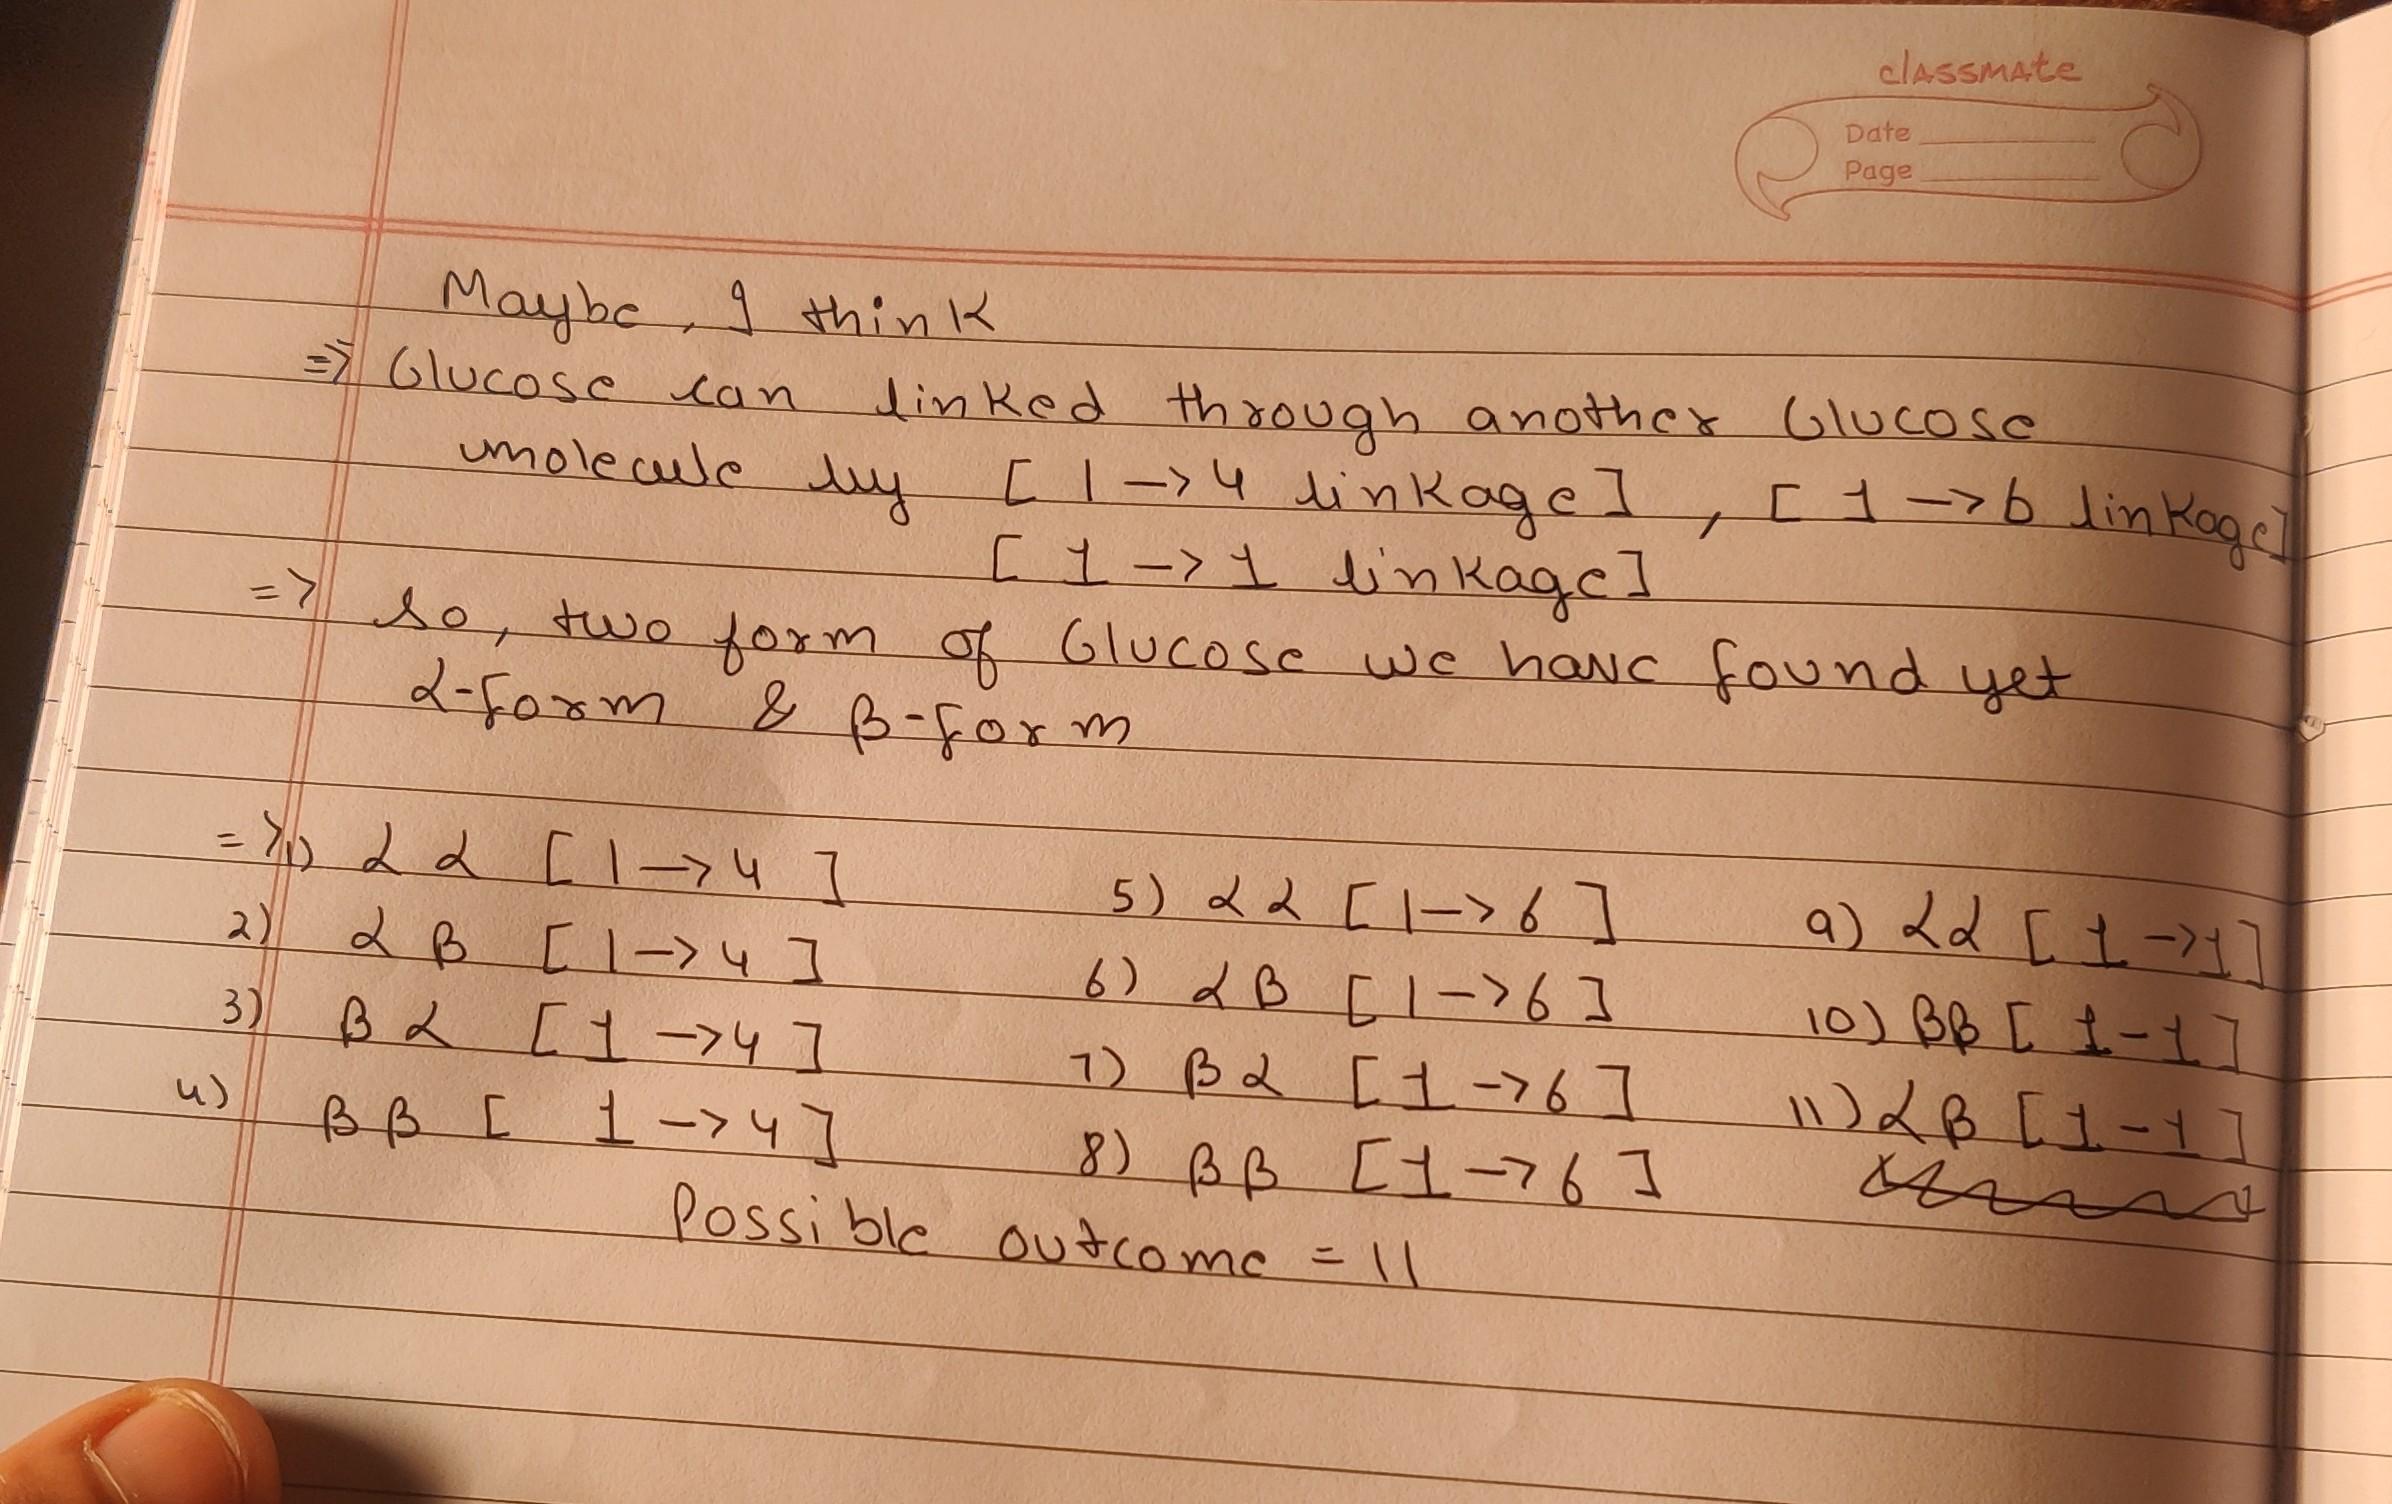 classmate
Date
Page
Maybe, I think
=> Glucose can linked through another Glucose
molecule by [ 1 -> 4 linkage ] , [ 1 -> 6 linkage ]
[ 1 -> 1 linkage ]
=> so, two form of Glucose we have found yet
α-form & β-form
=> 1) α α [ 1 -> 4 ] 5) α α [ 1 -> 6 ] 9) α α [ 1 -> 1 ]
2) α β [ 1 -> 4 ] 6) α β [ 1 -> 6 ] 10) β β [ 1 - 1 ]
3) β α [ 1 -> 4 ] 7) β α [ 1 -> 6 ] 11) α β [ 1 - 1 ]
4) β β [ 1 -> 4 ] 8) β β [ 1 -> 6 ]
Possible outcome = 11